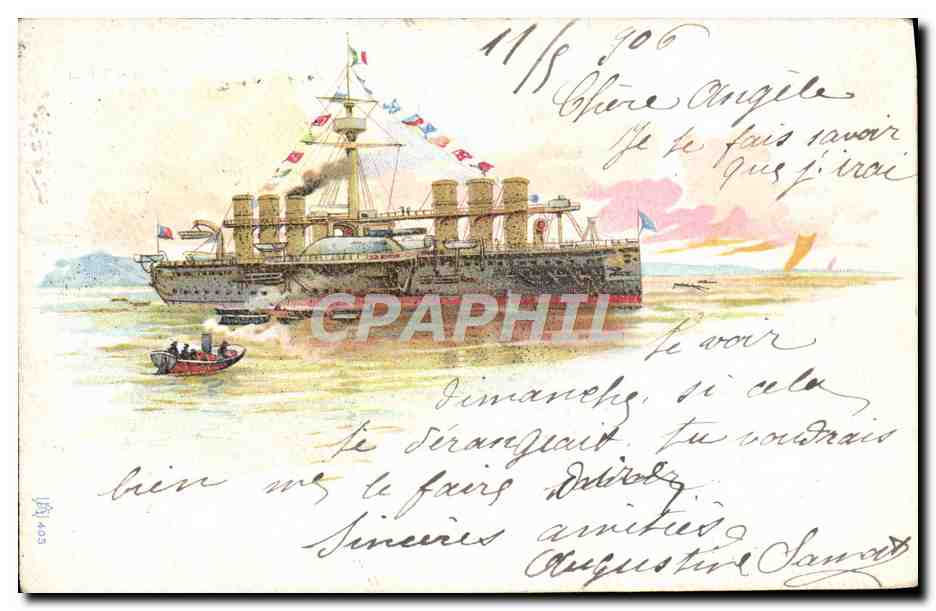 11/5 906
Chère Angèle
Je te fais savoir
que j'irai
CPAPHIL
te voir
dimanche, si cela
te dérangeait tu voudrais
bien me le faire
Sincères amitiés
Augustine
405